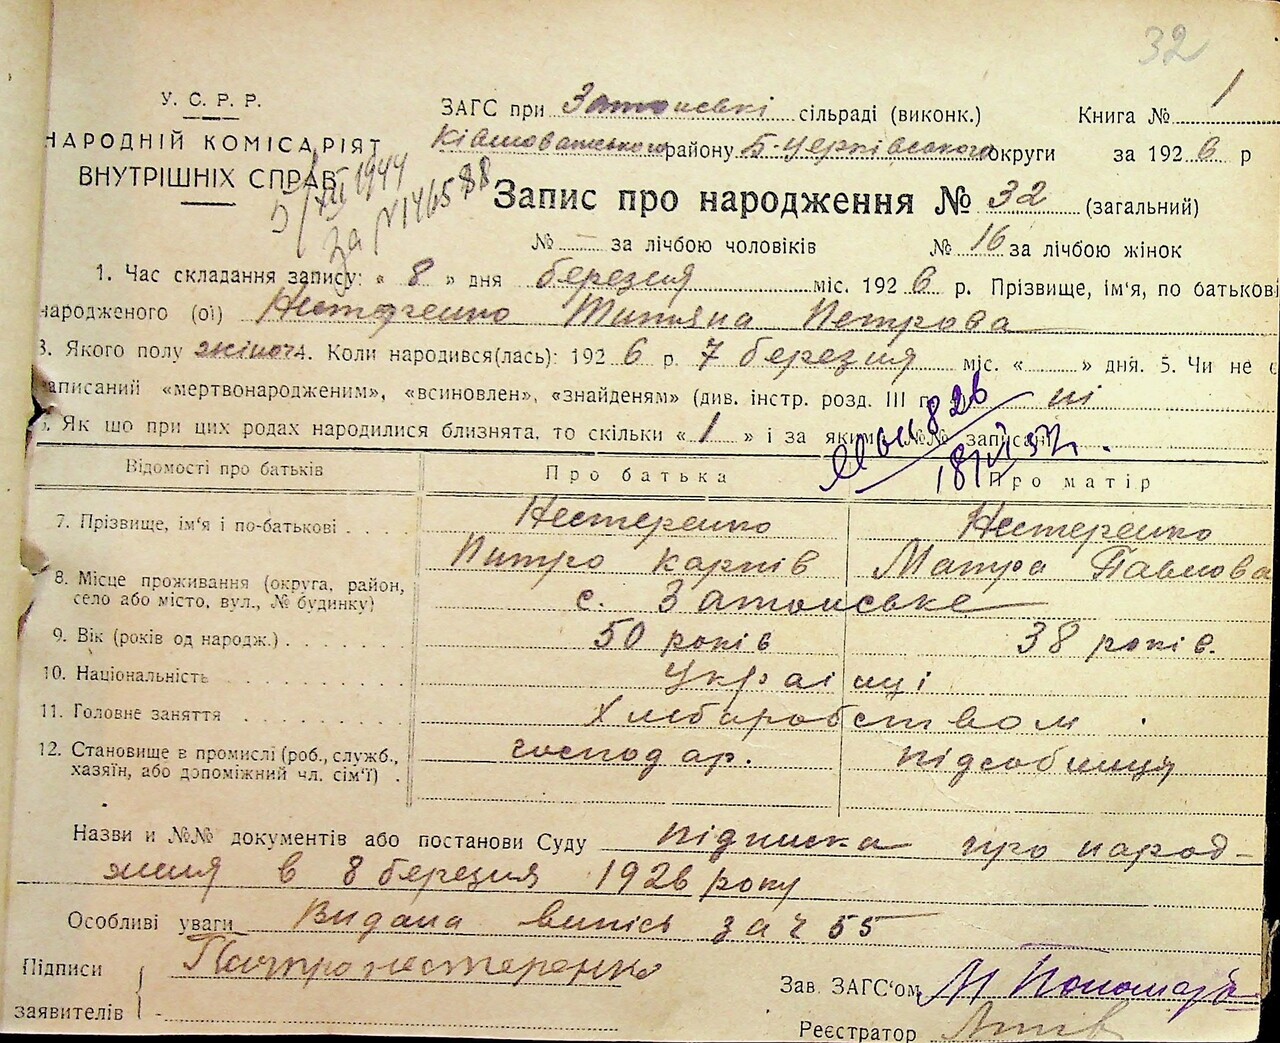 32
У. С. Р. Р.
НАРОДНІЙ КОМІСАРІЯТ
ВНУТРІШНІХ СПРАВ
5/XII 1944
за №146588
ЗАГС при Затонські сільраді (виконк.) Книга № 1
району Б-Церківського округи за 1926 р
Запис про народження № 32 (загальний)
№ – за лічбою чоловіків № 16 за лічбою жінок
1. Час складання запису: « 8 » дня березня міс. 1926 р. Прізвище, ім'я, по батькові
народженого (ої) Нестеренко Титяна Петрова
3. Якого полу жіноч 4. Коли народився(лась): 1926 р. 7 березня міс. « » дня. 5. Чи не є
записаний «мертвонародженим», «всиновлен», «знайденям» (див. інстр. розд. III г. ні
6. Як що при цих родах народилися близнята, то скільки « 1 » і за яким №№ записані
826
Відомості про батьків Про батька Про матір
7. Прізвище, ім'я і по-батькові Нестеренко Нестеренко
Питро Карпів Мотра Павлова
8. Місце проживання (округа, район,
село або місто, вул., № будинку) с. Затонське
9. Вік (років од народж.) 50 років 38 років.
10. Національність Українці
11. Головне заняття Хлібаробством
12. Становище в промислі (роб., служб.,
хазяїн, або допоміжний чл. сім'ї) господар. підсобниця
Назви и №№ документів або постанови Суду підписка про народ-
женя в 8 березня 1926 року
Особливі уваги Видана випісь за ч 55
Підписи Патро нестеренко
заявителів
Зав. ЗАГС'ом М Пономар
Реєстратор